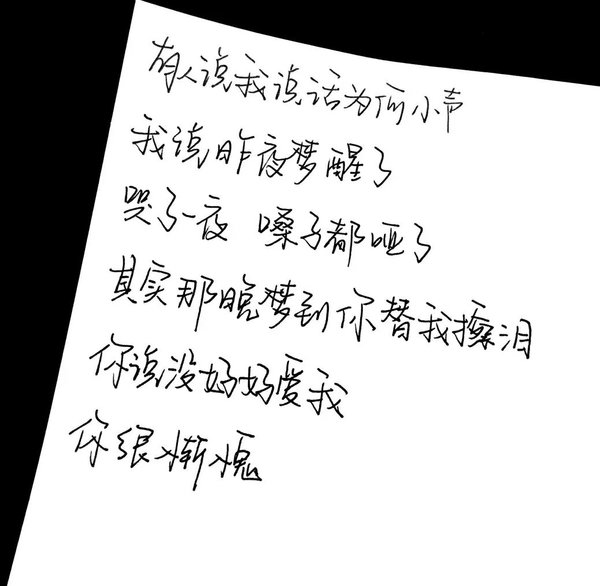 有人说我说话为何小声
我说昨夜梦醒了
哭了一夜 嗓子都哑了
其实那晚梦到你替我擦泪
你说没好好爱我
你很惭愧